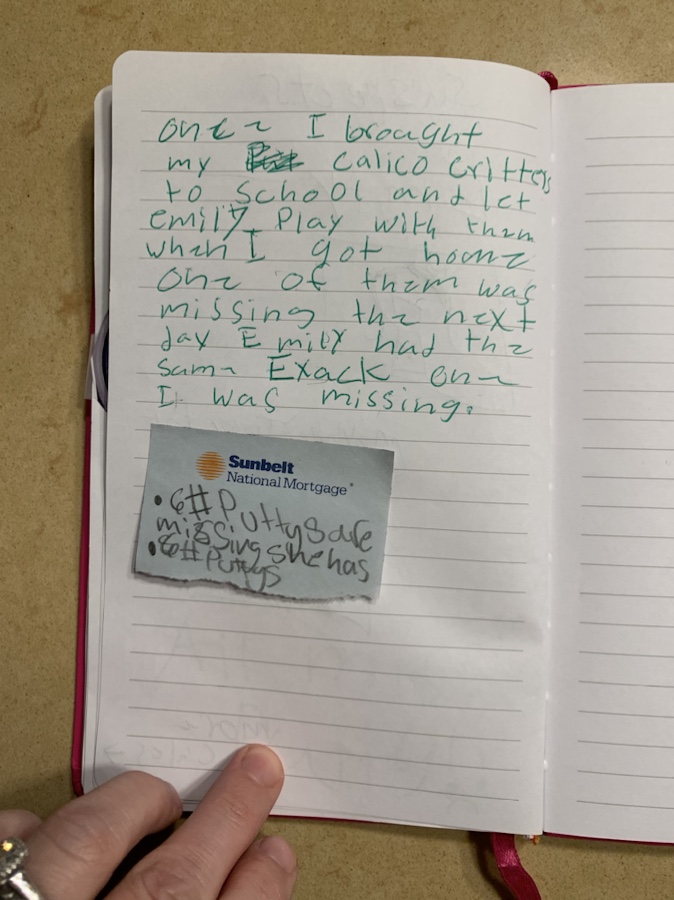 once I brought
my calico critters
to school and let
emily play with them
when I got home
one of them was
missing the next
day Emily had the
same Exack one
I was missing.
Sunbelt
National Mortgage
• 6# Puttys are
missing she has
• 6# Puttys